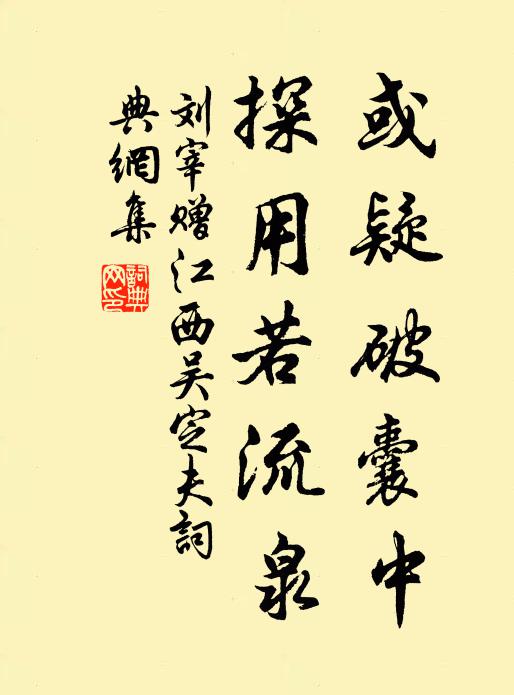 或疑破囊中
探用若流泉
刘宰赠江西吴定夫詞
典網集
詞典网印